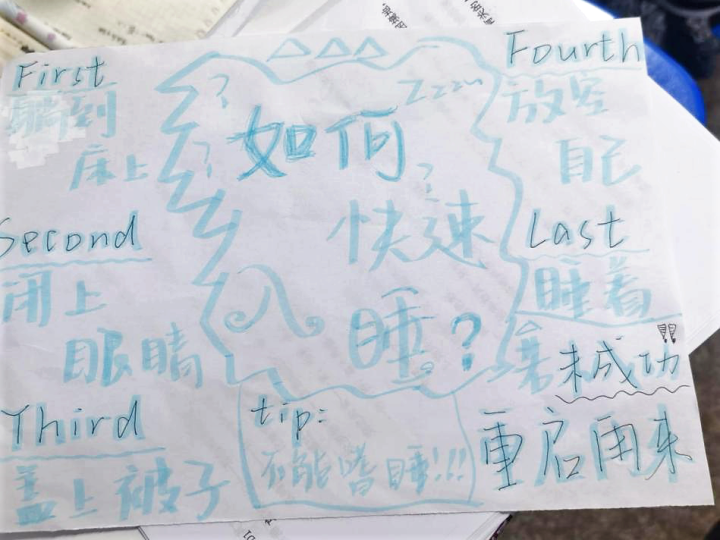 First
躺到
床上
Second
闭上
眼睛
Third
盖上被子
? Zzzzz
如何
快速
睡?
tip:
不能嗜睡!!!
Fourth
放空
自己
Last
睡着
若未成功!!
重启再来